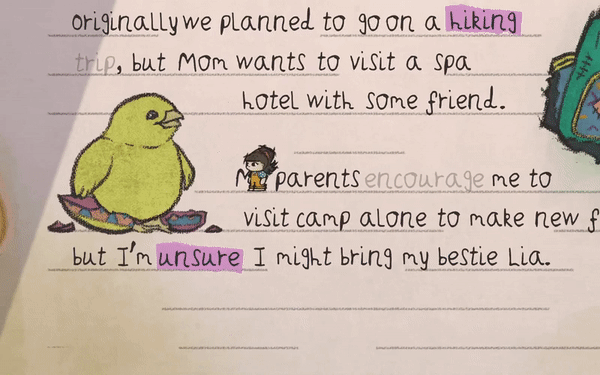 originally we planned to go on a hiking
trip, but Mom wants to visit a spa
hotel with some friend.
parents encourage me to
visit camp alone to make new
but I'm unsure I might bring my bestie Lia.